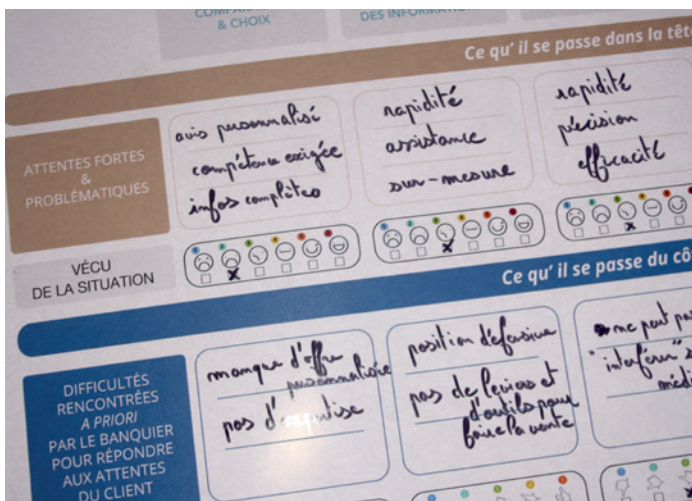 & CHOIX
DES INFORMATI
Ce qu' il se passe dans la tête
ATTENTES FORTES
&
PROBLÉMATIQUES
avis personnalisé
compétence exigée
infos complètes
rapidité
assistance
sur-mesure
rapidité
précision
efficacité
VÉCU
DE LA SITUATION
Ce qu' il se passe du cô
DIFFICULTÉS
RENCONTRÉES
A PRIORI
PAR LE BANQUIER
POUR RÉPONDRE
AUX ATTENTES
DU CLIENT
manque d'offre
personnalisée
pas d'expertise
position défensive
pas de leviers et
d'outils pour
faire la vente
ne peut pa
"interférer" s
médi